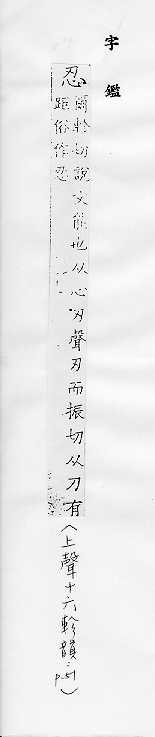 字鑑
忍
爾軫切說
文能也从心刃聲刃而振切从刀有
距俗作忍
(上聲十六軫韻.p.51)